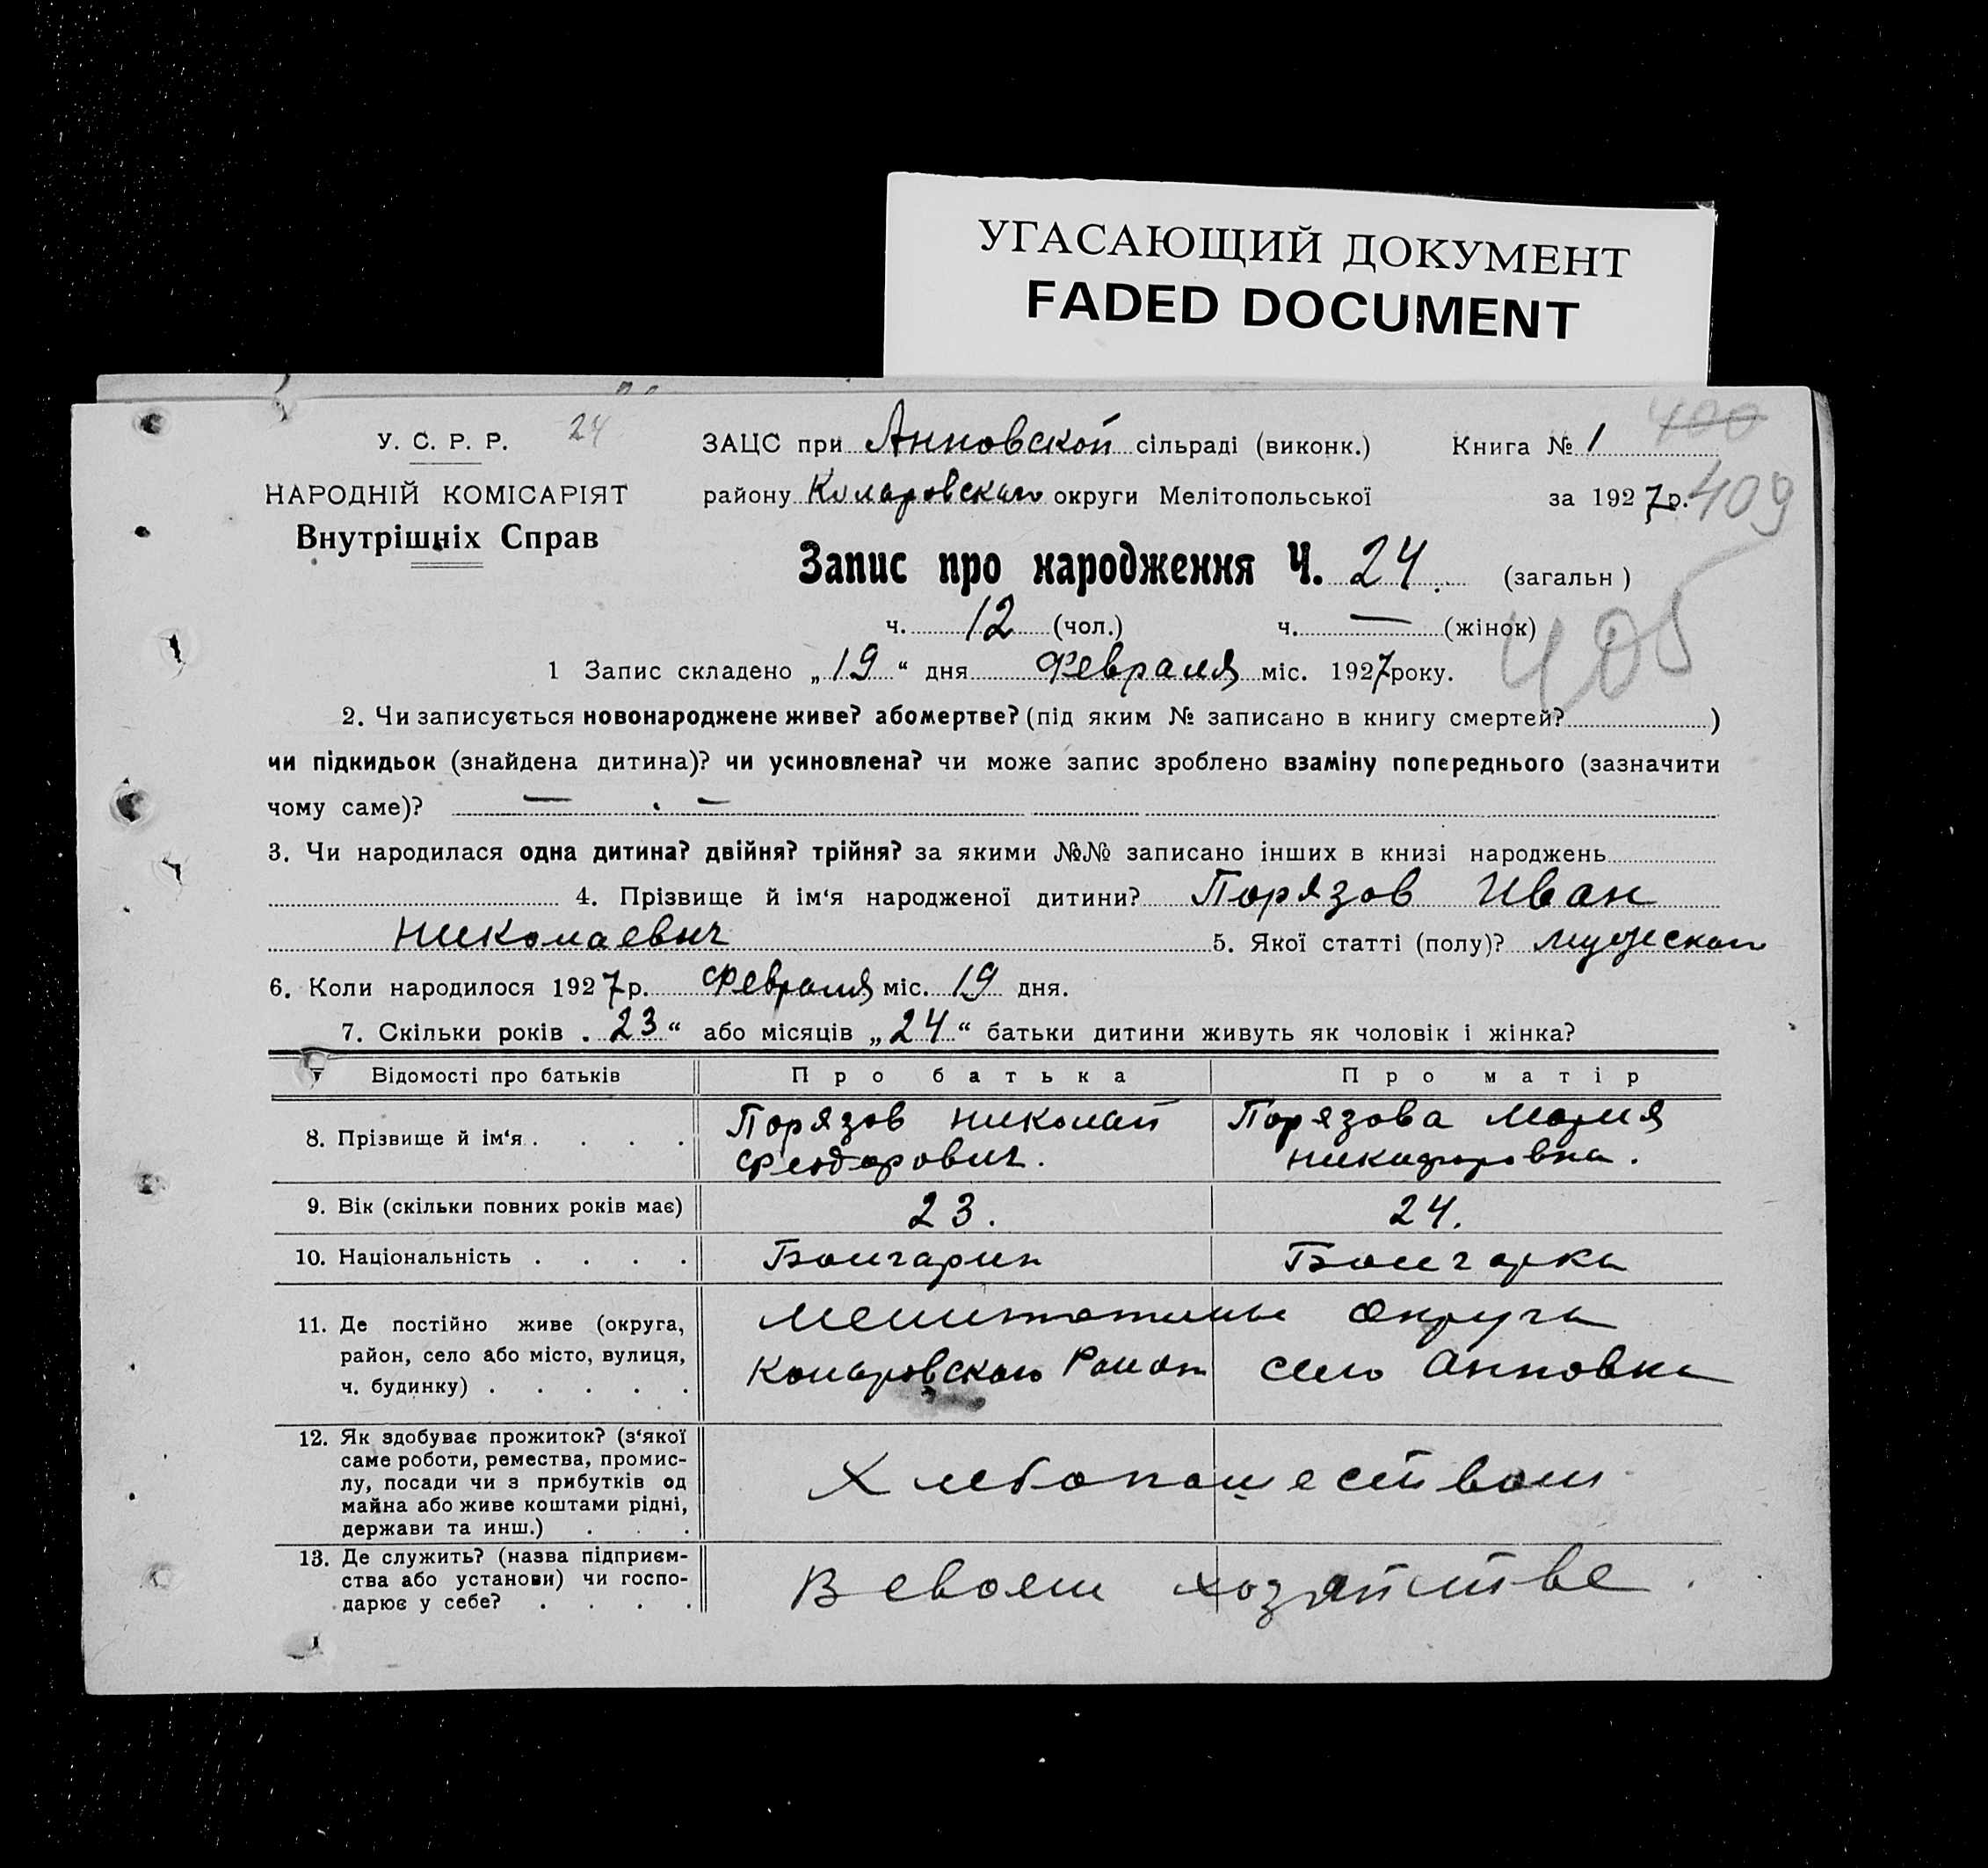 УГАСАЮЩИЙ ДОКУМЕНТ
FADED DOCUMENT
У. С. Р. Р. 24
НАРОДНІЙ КОМІСАРІЯТ
Внутрішніх Справ
ЗАЦС при Анновской сільраді (виконк.) Книга № 1 400
району Коларовскаго округи Мелітопольської за 1927 р. 409
Запис про народження Ч. 24. (загальн)
ч. 12 (чол.) ч. — (жінок) 405
1 Запис складено „19“ дня Февраля міс. 1927 року.
2. Чи записується новонароджене живе? або мертве? (під яким № записано в книгу смертей? )
чи підкидьок (знайдена дитина)? чи усиновлена? чи може запис зроблено взаміну попереднього (зазначити
чому саме)? — —
3. Чи народилася одна дитина? двійня? трійня? за якими №№ записано інших в книзі народжень
4. Прізвище й ім‘я народженої дитини? Порязов Иван
Николаевич 5. Якої статті (полу)? мужескаго
6. Коли народилося 1927 р. Февраля міс. 19 дня.
7. Скільки років „23“ або місяців „24“ батьки дитини живуть як чоловік і жінка?
Відомості про батьків Про батька Про матір
8. Прізвище й ім‘я . . . . Порязов Николай Порязова Мария
Феодорович. Никифоровна.
9. Вік (скільки повних років має) 23. 24.
10. Національність . . . . Болгарин Болгарка
11. Де постійно живе (округа,
район, село або місто, вулиця,
ч. будинку) . . . . .
округа
Коларовскаго Район село Анновка
12. Як здобуває прожиток? (з‘якої
саме роботи, ремества, промис-
лу, посади чи з прибутків од
майна або живе коштами рідні,
держави та инш.) . . .
Хлебопашеством
13. Де служить? (назва підприєм-
ства або установи) чи госпо-
дарює у себе? . . . .
В своем хозяйстве.